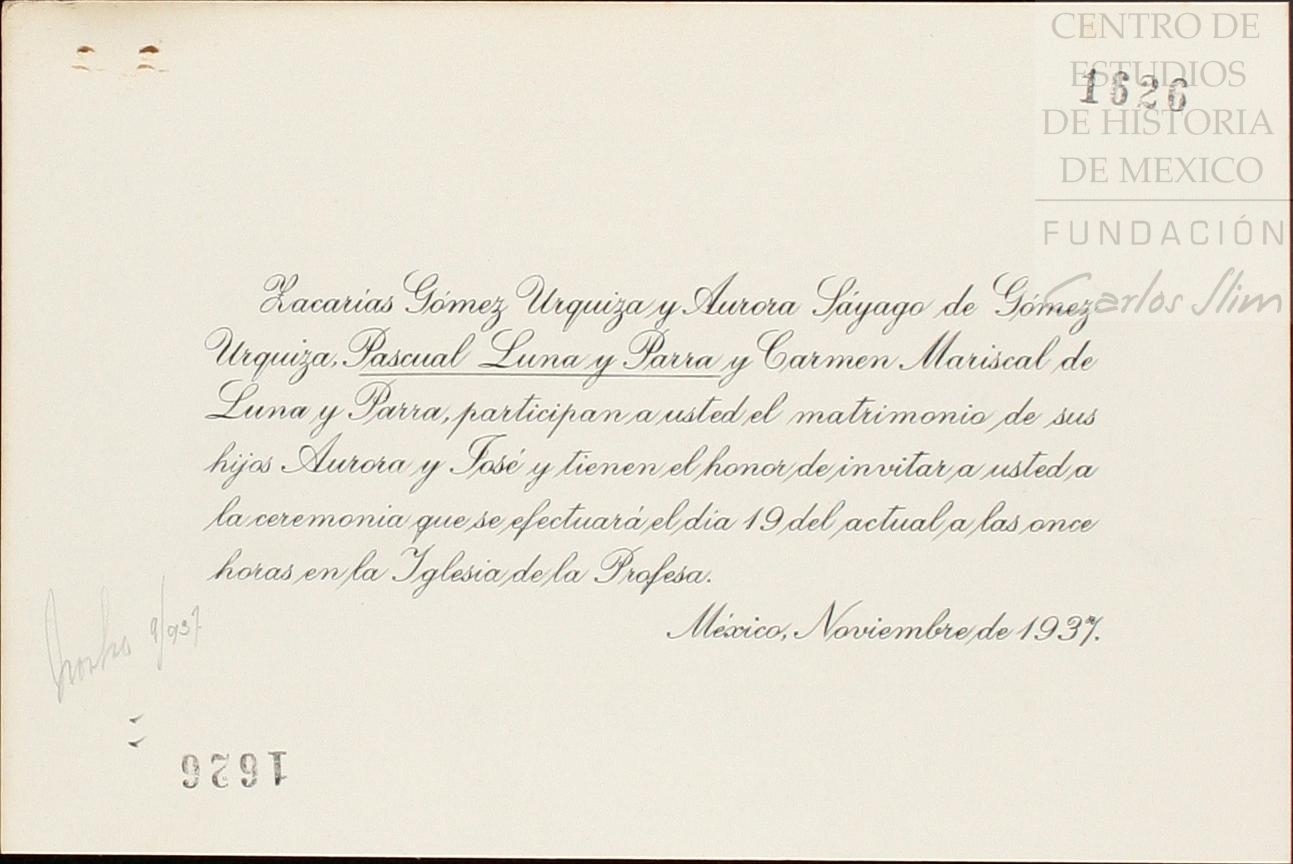 CENTRO DE
ESTUDIOS
1626
DE HISTORIA
DE MEXICO
FUNDACIÓN
Carlos Slim
Zacarías Gómez Urquiza y Aurora Sáyago de Gómez
Urquiza, Pascual Luna y Parra y Carmen Mariscal de
Luna y Parra, participan a usted el matrimonio de sus
hijos Aurora y José y tienen el honor de invitar a usted a
la ceremonia que se efectuará el día 19 del actual a las once
horas en la Iglesia de la Profesa.
México, Noviembre de 1937.
9/937
1626